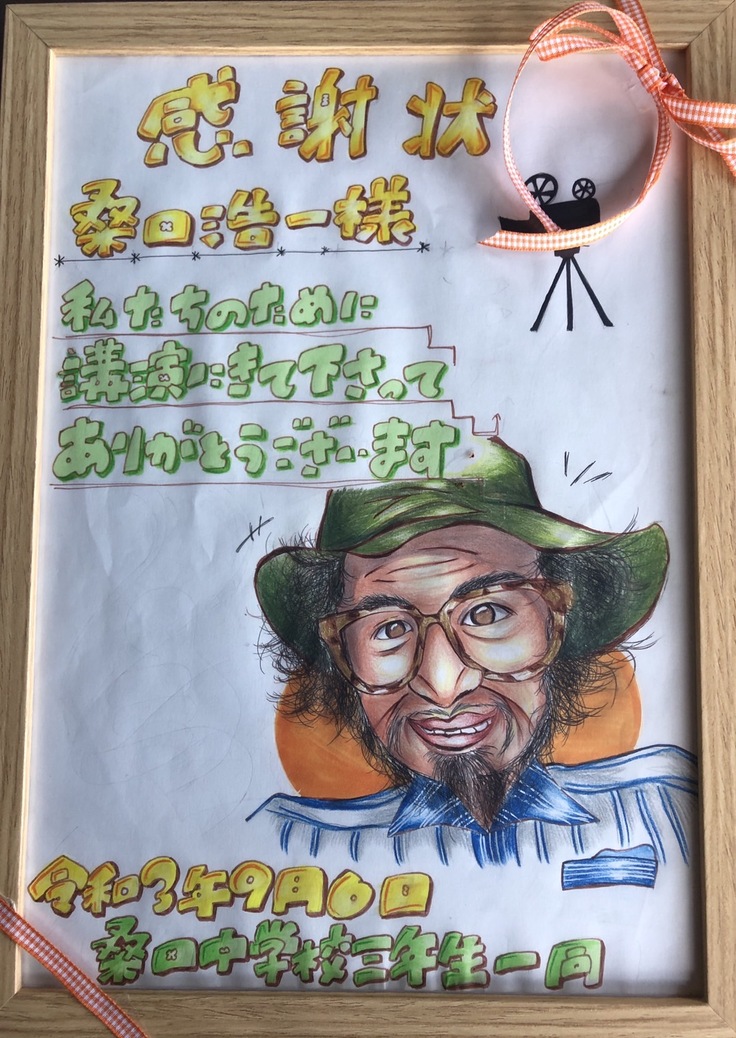 感謝状
桑田浩一様
私たちのために
講演にきて下さって
ありがとうございます
令和3年9月6日
桑田中学校三年生一同